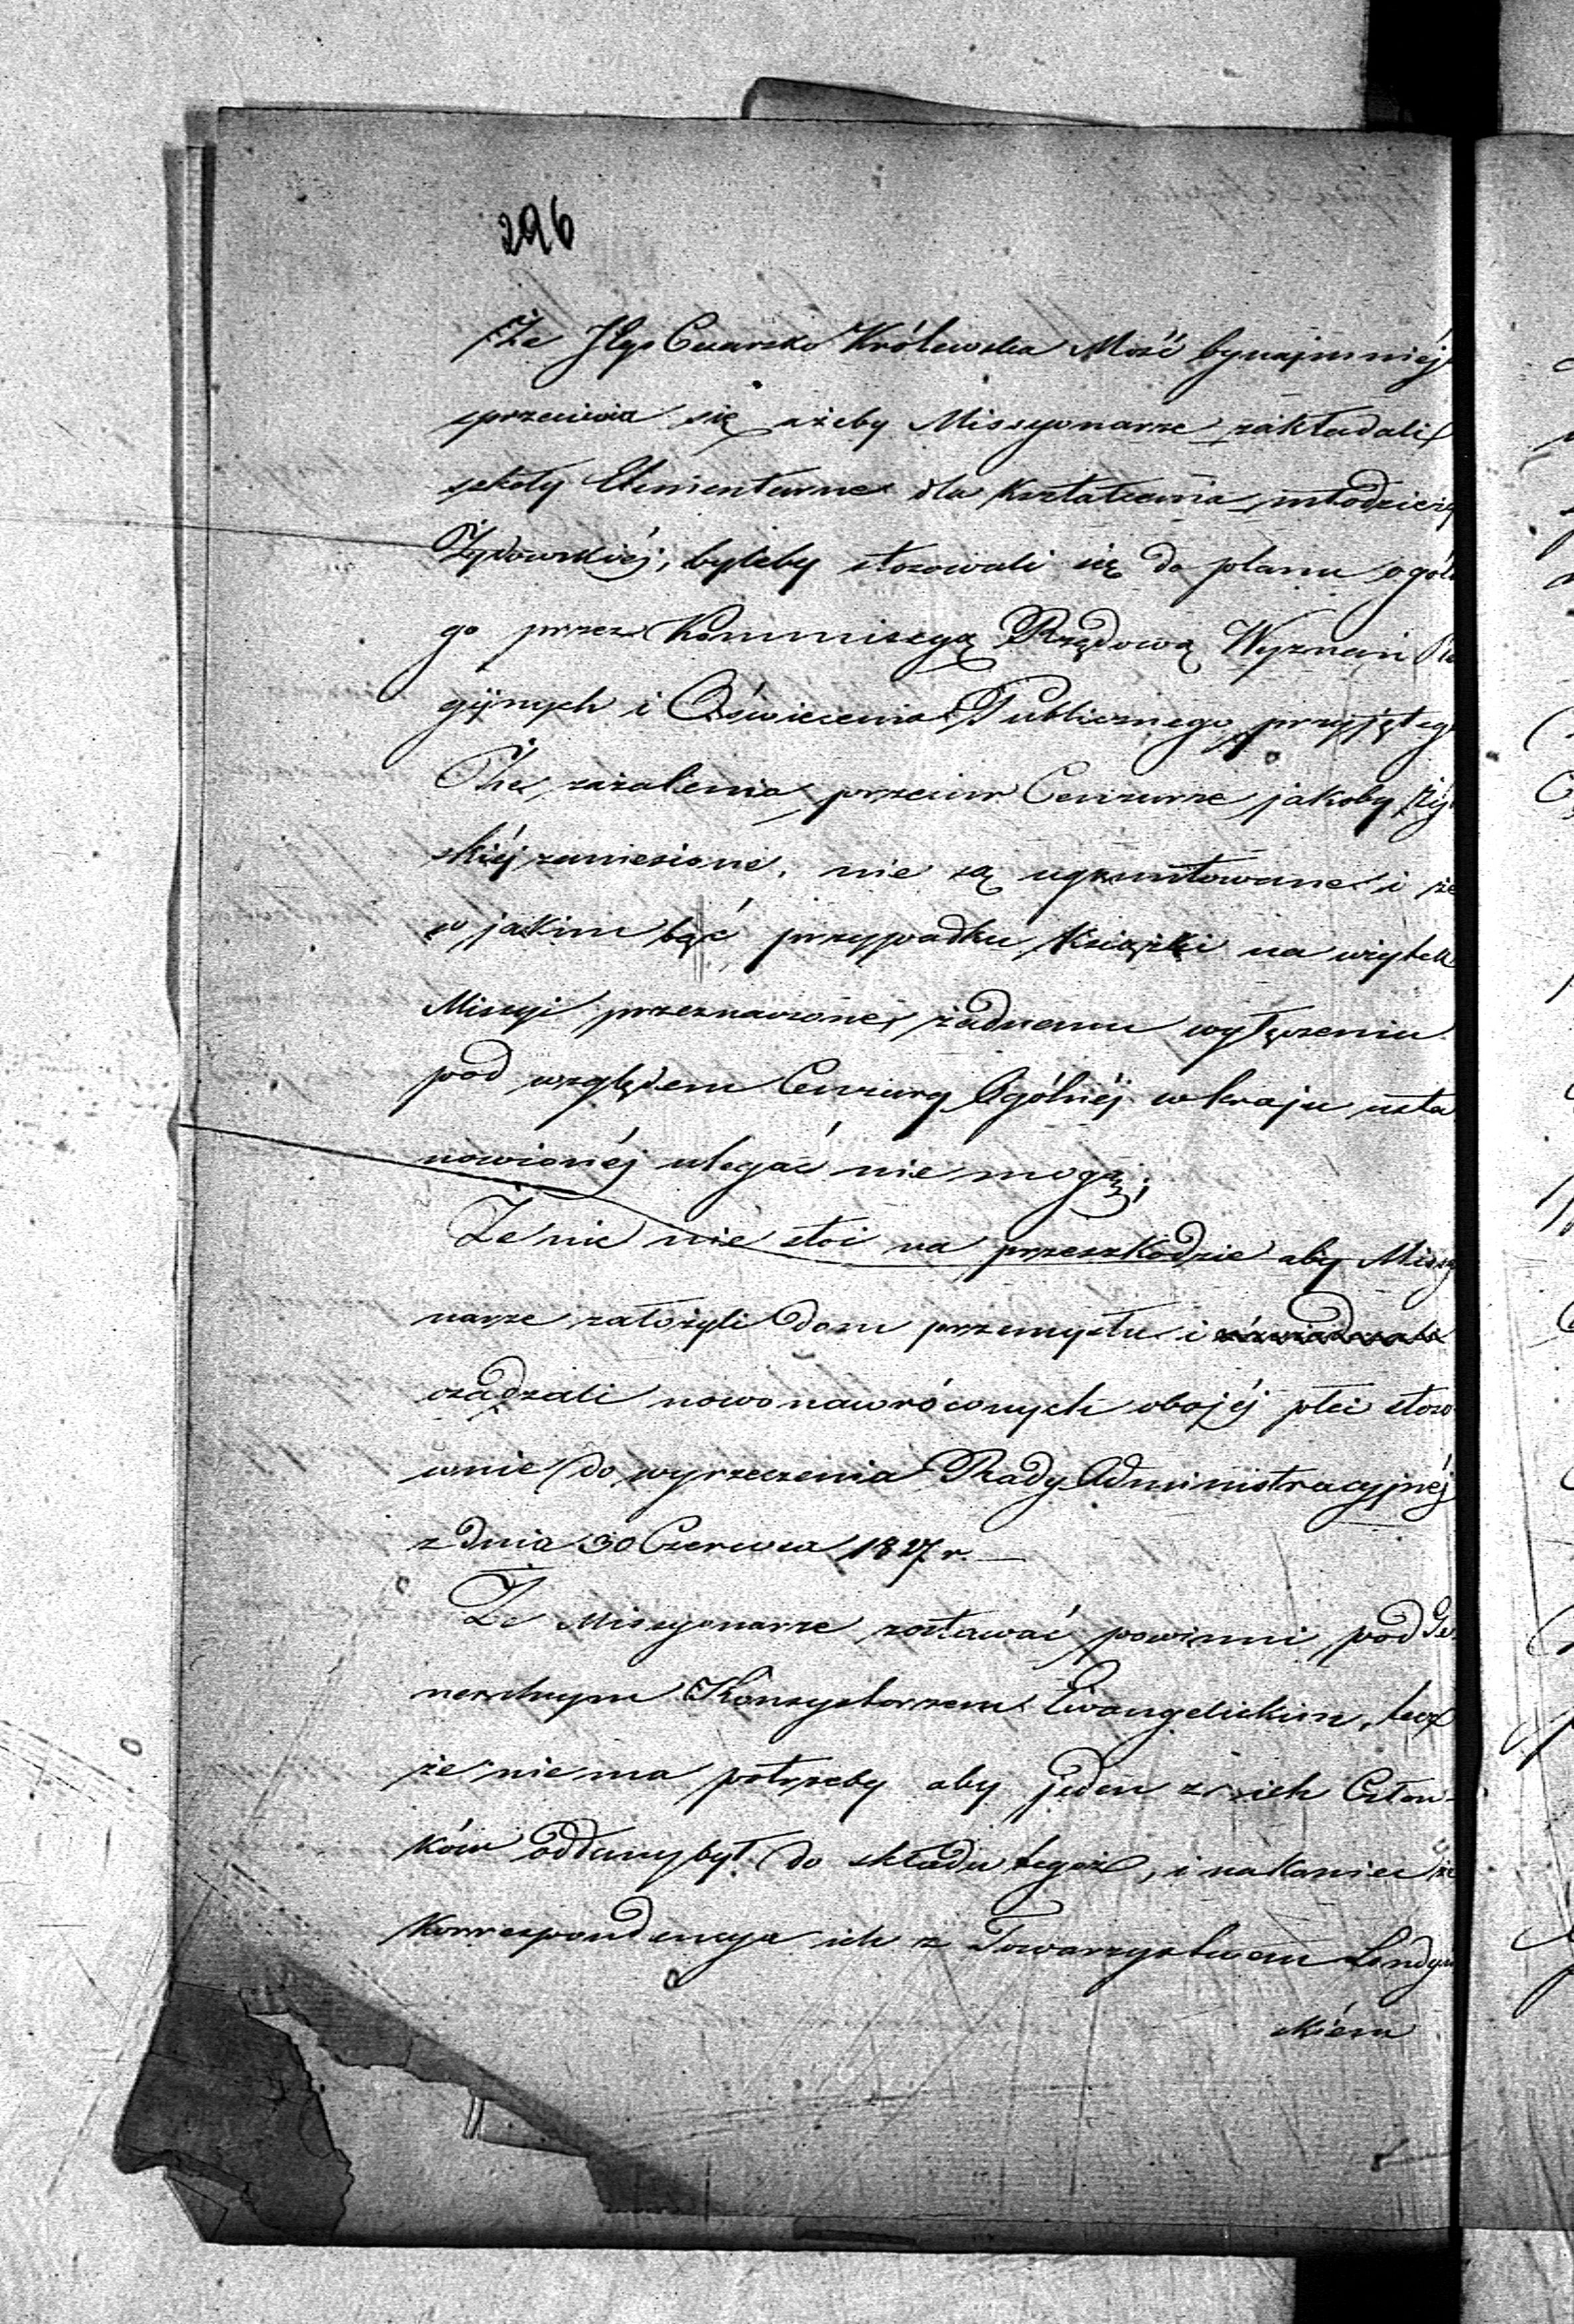 296
Że Jego Cesarsko Królewska Mość bynajmniéj
sprzeciwia się ażeby Missyonarze zakładali
szkoły Elementarne dla kształcenia młodzieży
Żydowskiéj, byleby stosowali się do planu ogól
go przez Kommissyą Rządową Wyznań Re
gijnych i Oświecenia Publicznego przyjęteg
Że zażalenia przeciw Cenzurze jakoby Ży
skiéj zaniesione, nie są ugruntowane i że
w jakim bąć przypadku Książki na użytek
Missyi przeznaczone żadnemu wyłączeniu
pod względem Cenzury Ogólnéj w kraju usta
nowionéj ulegać nie mogą;
Że nic nie stoi na przeszkodzie aby Missy
narze założyli dom przemysłu i
osadzali nowonawróconych obojéj płci stoso
wnie do wyrzeczenia Rady Administracyjnéj
z dnia 30 Czerwca 1827 r.
Że Missyonarze zostawać powinni pod Ge
neralnym Konsystorzem Ewangelickim, lecz
że niema potrzeby aby jeden z ich Człon-
ków oddany był do składu tegoż, i nakoniec że
Korrespondencya ich z Towarzystwem Londyń
skiém